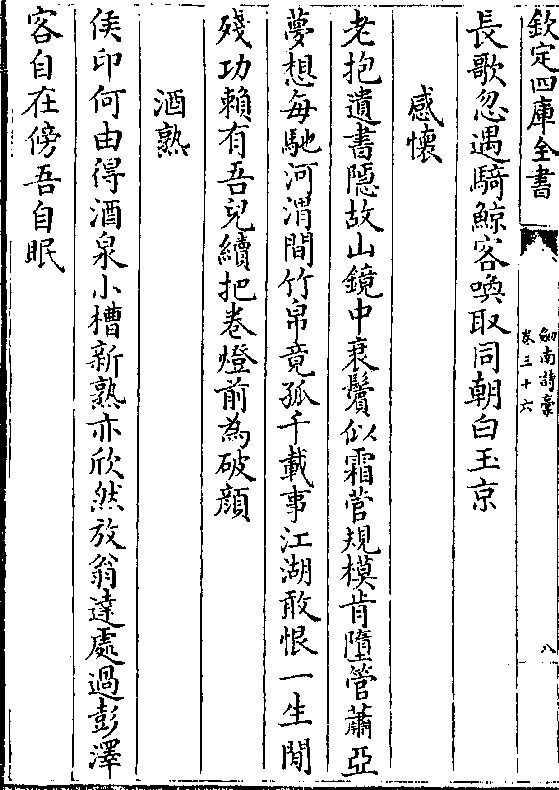 欽定四庫全書
劒南詩稾
卷三十六
八
長歌忽遇騎鯨客喚取同朝白玉京
感懷
老抱遺書隠故山鏡中衰鬢似霜菅規模肯墮管蕭亞
夢想每馳河渭間竹帛竟孤千載事江湖敢恨一生閒
殘功賴有吾兒續把卷燈前為破顔
酒熟
侯印何由得酒泉小槽新熟亦欣然放翁達處過彭澤
客自在傍吾自眠